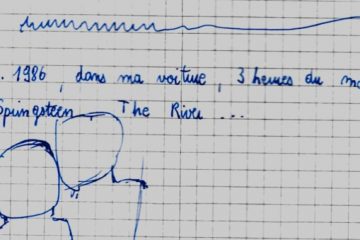 . 1986, dans ma voiture, 3 heures du ma
Springsteen, The River ...